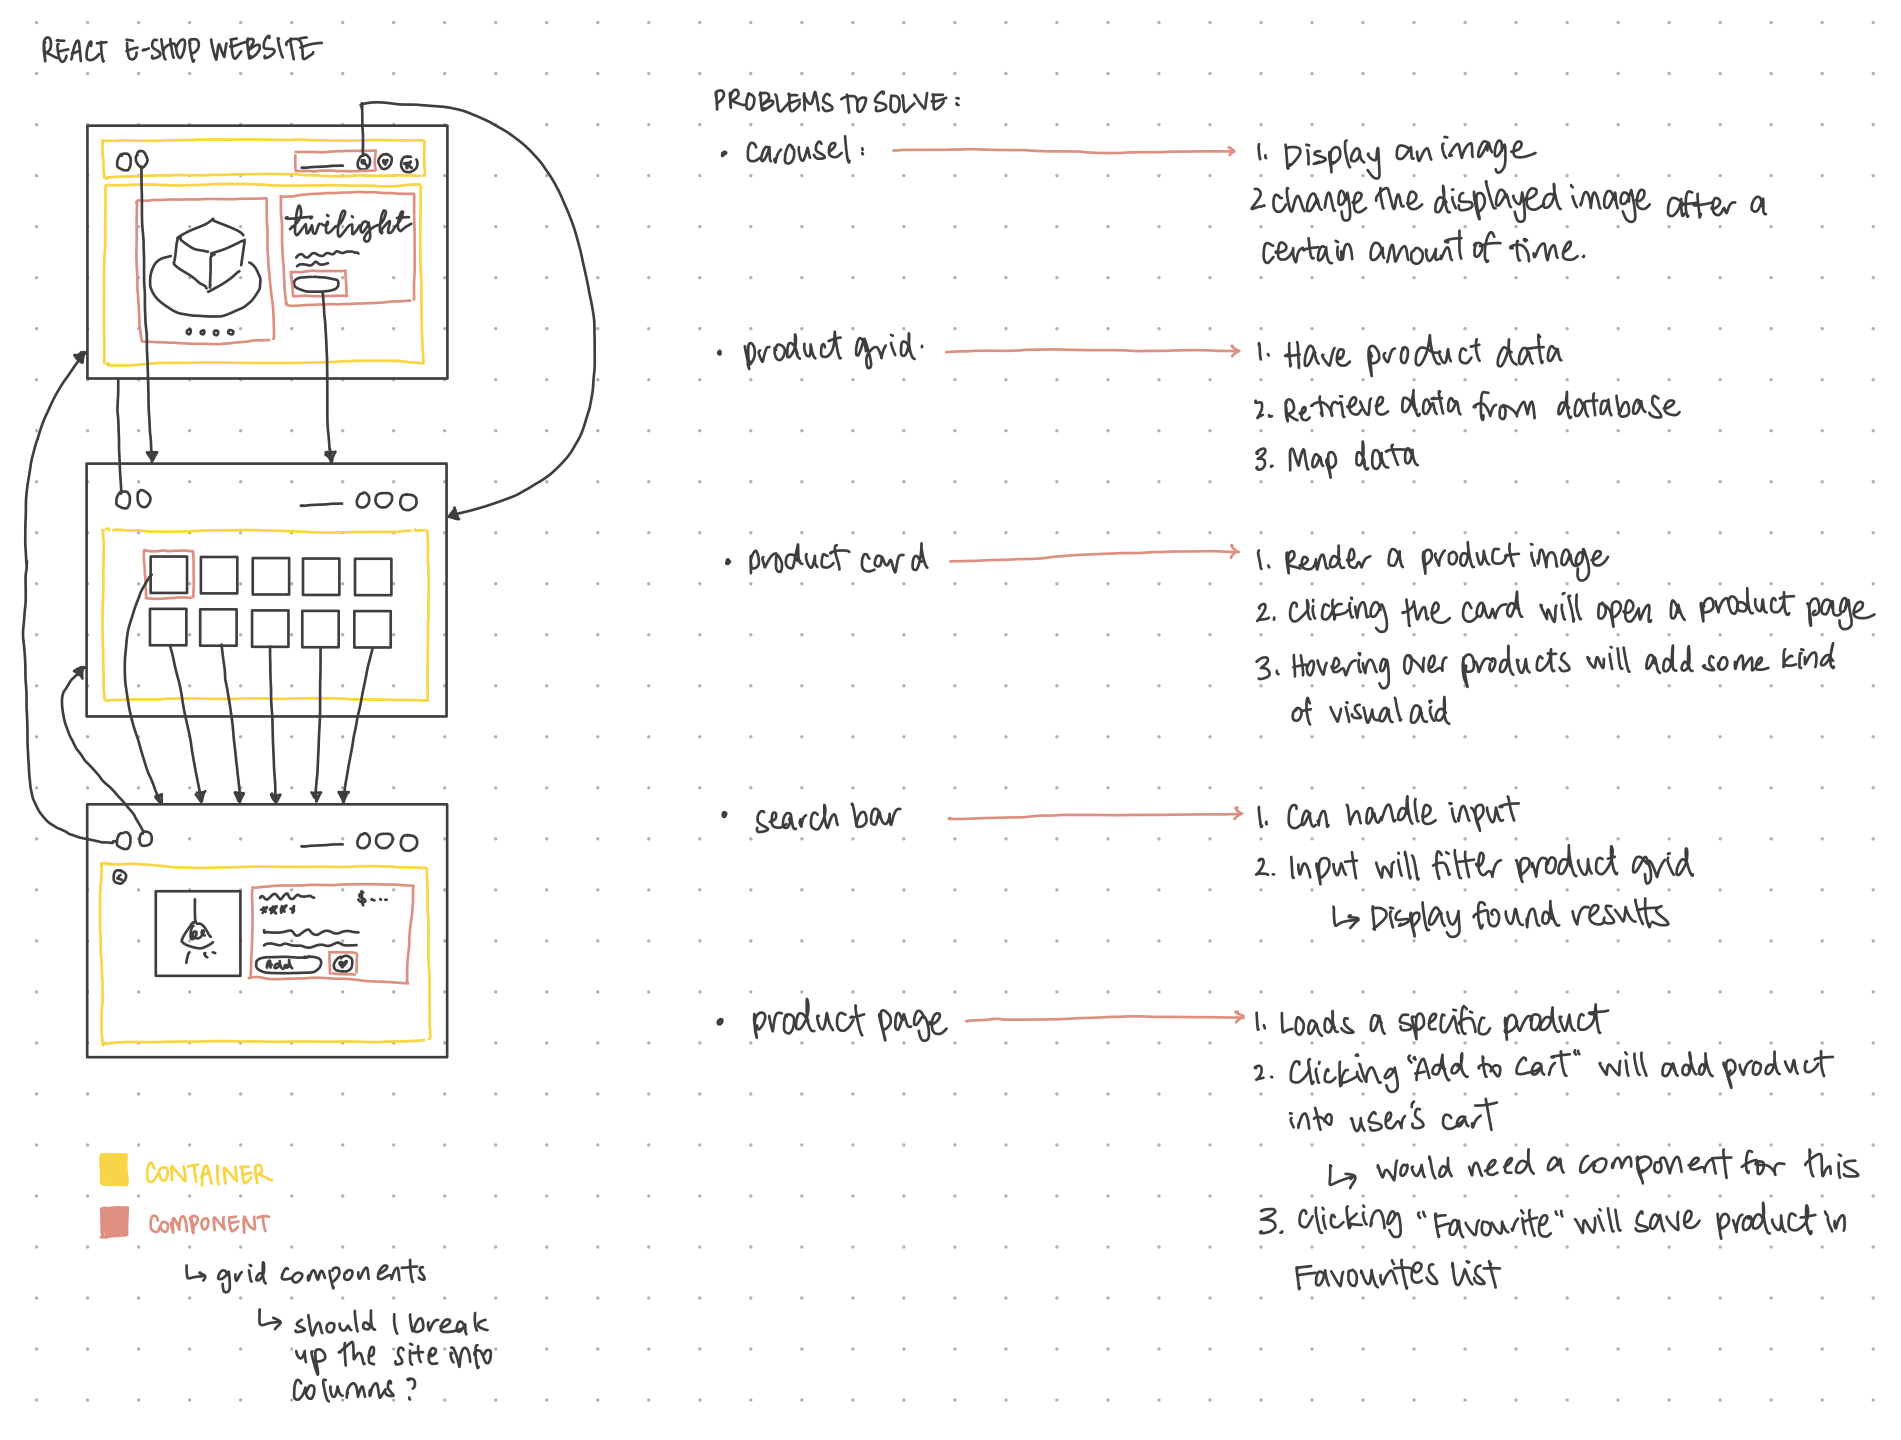 REACT E-SHOP WEBSITE
twilight
$...
Add
CONTAINER
COMPONENT
↳ grid components
↳ should I break
up the site into
columns?
PROBLEMS TO SOLVE:
• carousel:
1. Display an image
2 change the displayed image after a
certain amount of time.
• product grid.
1. Have product data
2. Retrieve data from database
3. Map data
• product card
1. Render a product image
2. clicking the card will open a product page
3. Hovering over products will add some kind
of visual aid
• search bar
1. Can handle input
2. Input will filter product grid
↳ Display found results
• product page
1. Loads a specific product
2. Clicking "Add to cart" will add product
into user's cart
↳ would need a component for this
3. Clicking "Favourite" will save product in
Favourites list